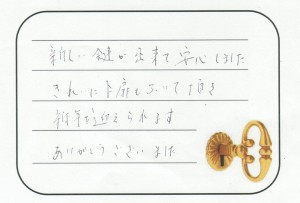 新しい鍵が出来て安心しました
きれいにお直しついて頂き
新年を迎えられます
ありがとうございました